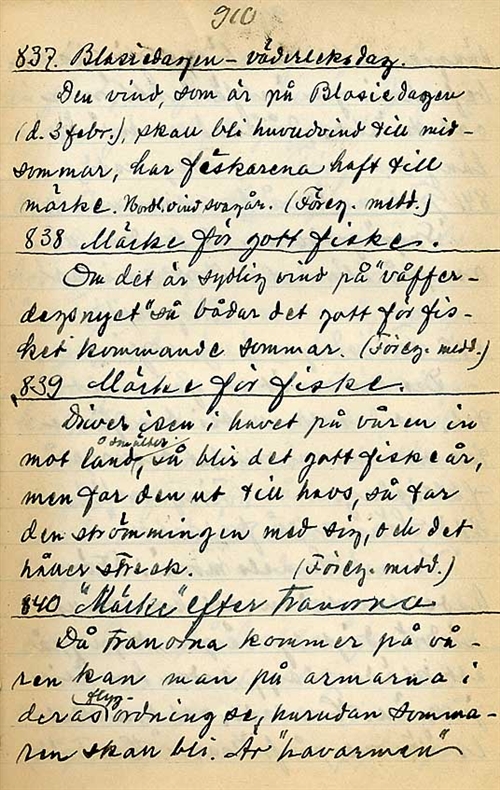 910
837. Blasiedagen – väderleksdag.
Den vind, som är på Blasiedagen
(d. 3 febr.), skall bli huvudvind till mid-
sommar, har feskarena haft till
märke. Nordl. vind svagår. (Föreg. medd.)
838 Märke för gott fiske.
Om det är sydlig vind på "våffer-
degsnyet" så bådar det gott för fis-
ket kommande sommar. (Föreg. medd.)
839 Märke för fiske.
Driver isen i havet på våren in
mot land, o smälter så blir det gott fiskeår,
men far den ut till havs, så tar
den strömmingen med sig, och det
håller streck. (Föreg. medd.)
840 "Märke" efter tranorna
Då tranorna kommer på vå-
ren kan man på armarna i
deras flyg-ordning se, hurudan somma-
ren skall bli. Är "havarmen"